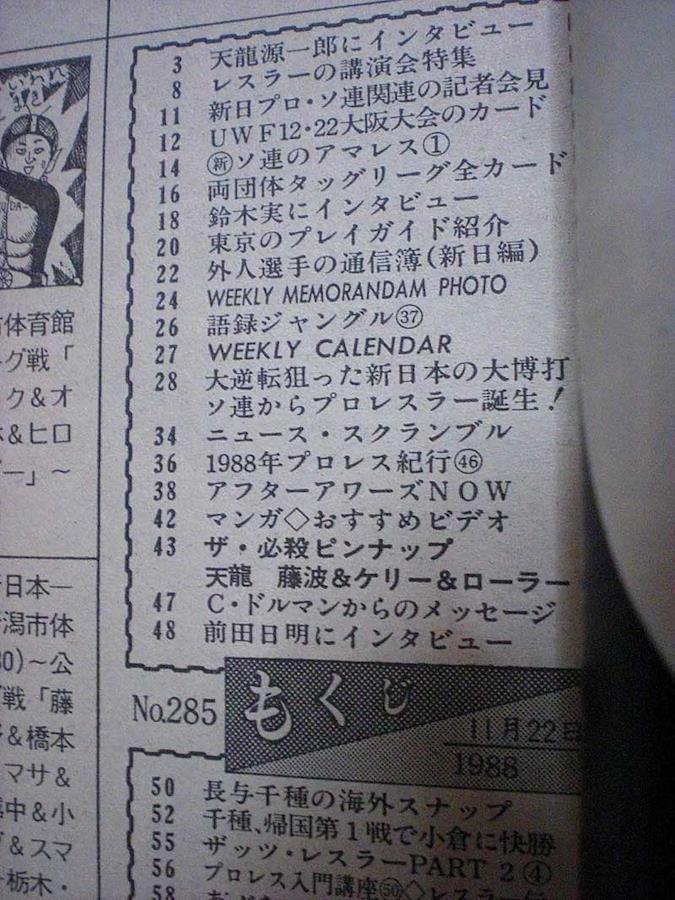 いわれ
まき
市体育館
グ戦「
ク＆オ
＆ヒロ
ー」～
新日本一
潟市体
30)～公
戦「藤
＆橋本
マサ＆
越中＆小
＆スマ
栃木・
3 天龍源一郎にインタビュー
8 レスラーの講演会特集
11 新日プロ・ソ連関連の記者会見
12 UWF12・22大阪大会のカード
14 ㊟ソ連のアマレス①
16 両団体タッグリーグ全カード
18 鈴木実にインタビュー
20 東京のプレイガイド紹介
22 外人選手の通信簿(新日編)
24 WEEKLY MEMORANDAM PHOTO
26 語録ジャングル㊲
27 WEEKLY CALENDAR
28 大逆転狙った新日本の大博打
ソ連からプロレスラー誕生!
34 ニュース・スクランブル
36 1988年プロレス紀行㊻
38 アフターアワーズNOW
42 マンガ◇おすすめビデオ
43 ザ・必殺ピンナップ
天龍 藤波＆ケリー＆ローラー
47 C・ドルマンからのメッセージ
48 前田日明にインタビュー
No.285
もくじ
11月22日
1988
50 長与千種の海外スナップ
52 千種、帰国第1戦で小倉に快勝
55 ザッツ・レスラーPART 2④
56 プロレス入門講座㊿◇レスラー
58